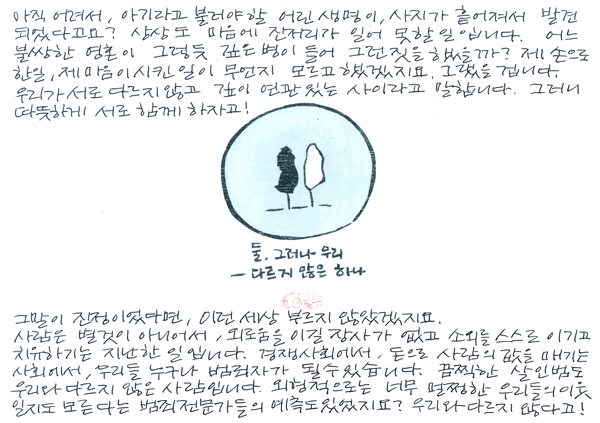 아직 어려서, 아기라고 불러야 할 어린 생명이, 사지가 흩어져서 발견
되었다고요? 상상도 마음에 잔저리가 일어 못할 일입니다. 어느
불쌍한 영혼이 그렇듯 깊은 병이 들어 그런 짓을 했을까? 제 손으로
한 일, 제 마음이 시킨 일이 무언지 모르고 했겠지요. 그랬을 겁니다.
우리가 서로 다르지 않고 깊이 연관 있는 사이라고 말합니다. 그러니
따뜻하게 서로 함께 하자고!
둘. 그러나 우리
— 다르지 않은 하나
그 말이 진정이었다면, 이런 세상 부르지 않았겠지요.
사람은 별것이 아니어서, 외로움을 이길 장사가 없고 소외를 스스로 이기고
치유하기는 지난한 일입니다. 경쟁사회에서, 돈으로 사람의 값을 매기는
사회에서, 우리들 누구나 범죄자가 될 수 있습니다. 끔찍한 살인범도
우리와 다르지 않은 사람입니다. 외형적으로는 너무 멀쩡한 우리들의 이웃
일지도 모른다는 범죄전문가들의 예측도 있었지요? 우리와 다르지 않다고!